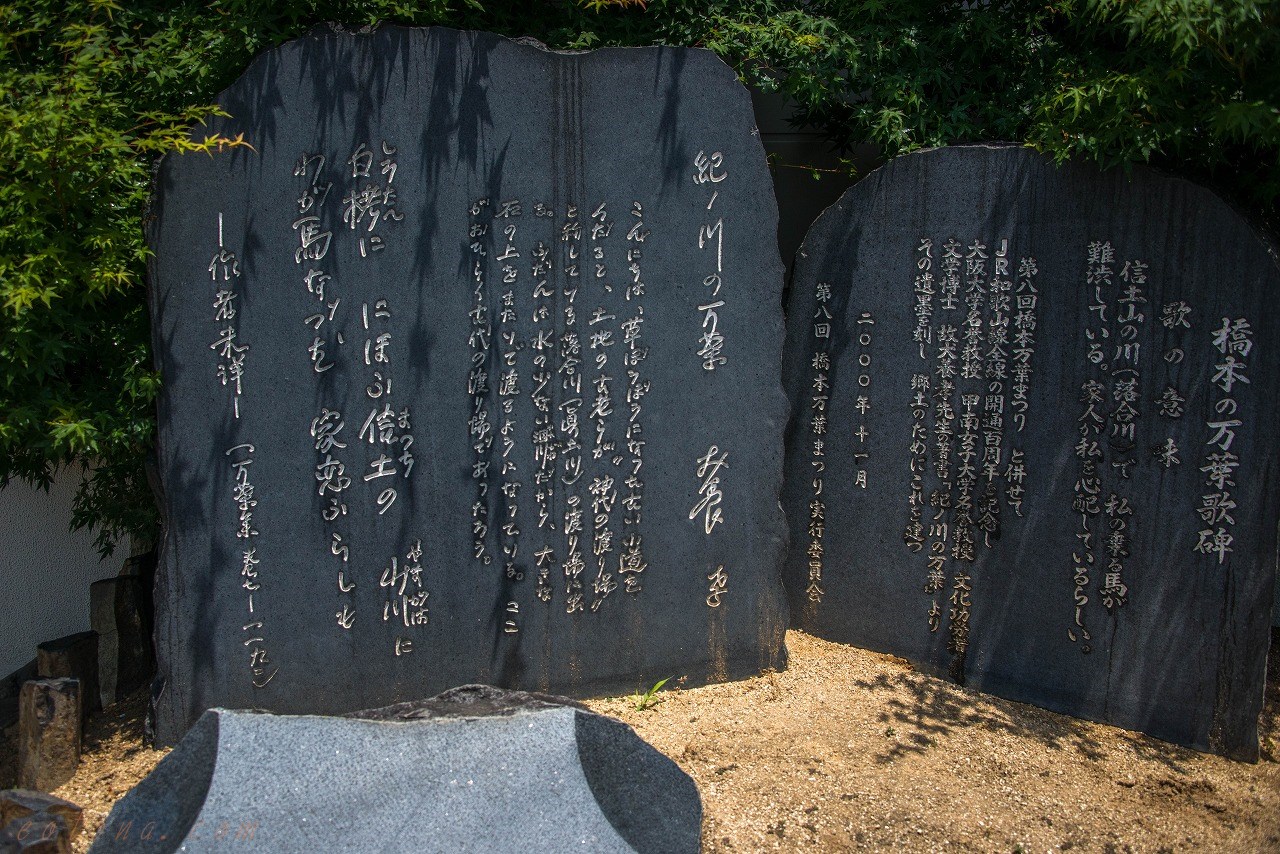 橋本の万葉歌碑
歌の意味
信土山の川(落合川)で 私の乗る馬が
難渋している。家人が私を心配しているらしい。
第八回橋本万葉まつり と併せて
JR和歌山線全線の開通百周年を記念し
大阪大学名誉教授 甲南女子大学名誉教授 文化功労者
文学博士 故犬養孝先生の著書「紀ノ川の万葉」より
その遺墨を刻し 郷土のためにこれを建つ
二〇〇〇年十一月
第八回 橋本万葉まつり実行委員会
紀ノ川の万葉 犬養 孝
こんにちは、草ぼうぼうになった古い小道を
くだると、土地の古老らが“神代の渡り場”
と称している落合川(真土川)の渡り場に出
る。ふだんは水の少ない涸川だから、大きな
石の上をまたいで渡るようになっている。ここ
がおそらく古代の渡り場であったろう。
白栲に にほふ信土の 山川に
わが馬なづむ 家恋ふらしも
—作者未詳— (万葉集 巻七—一一九二)